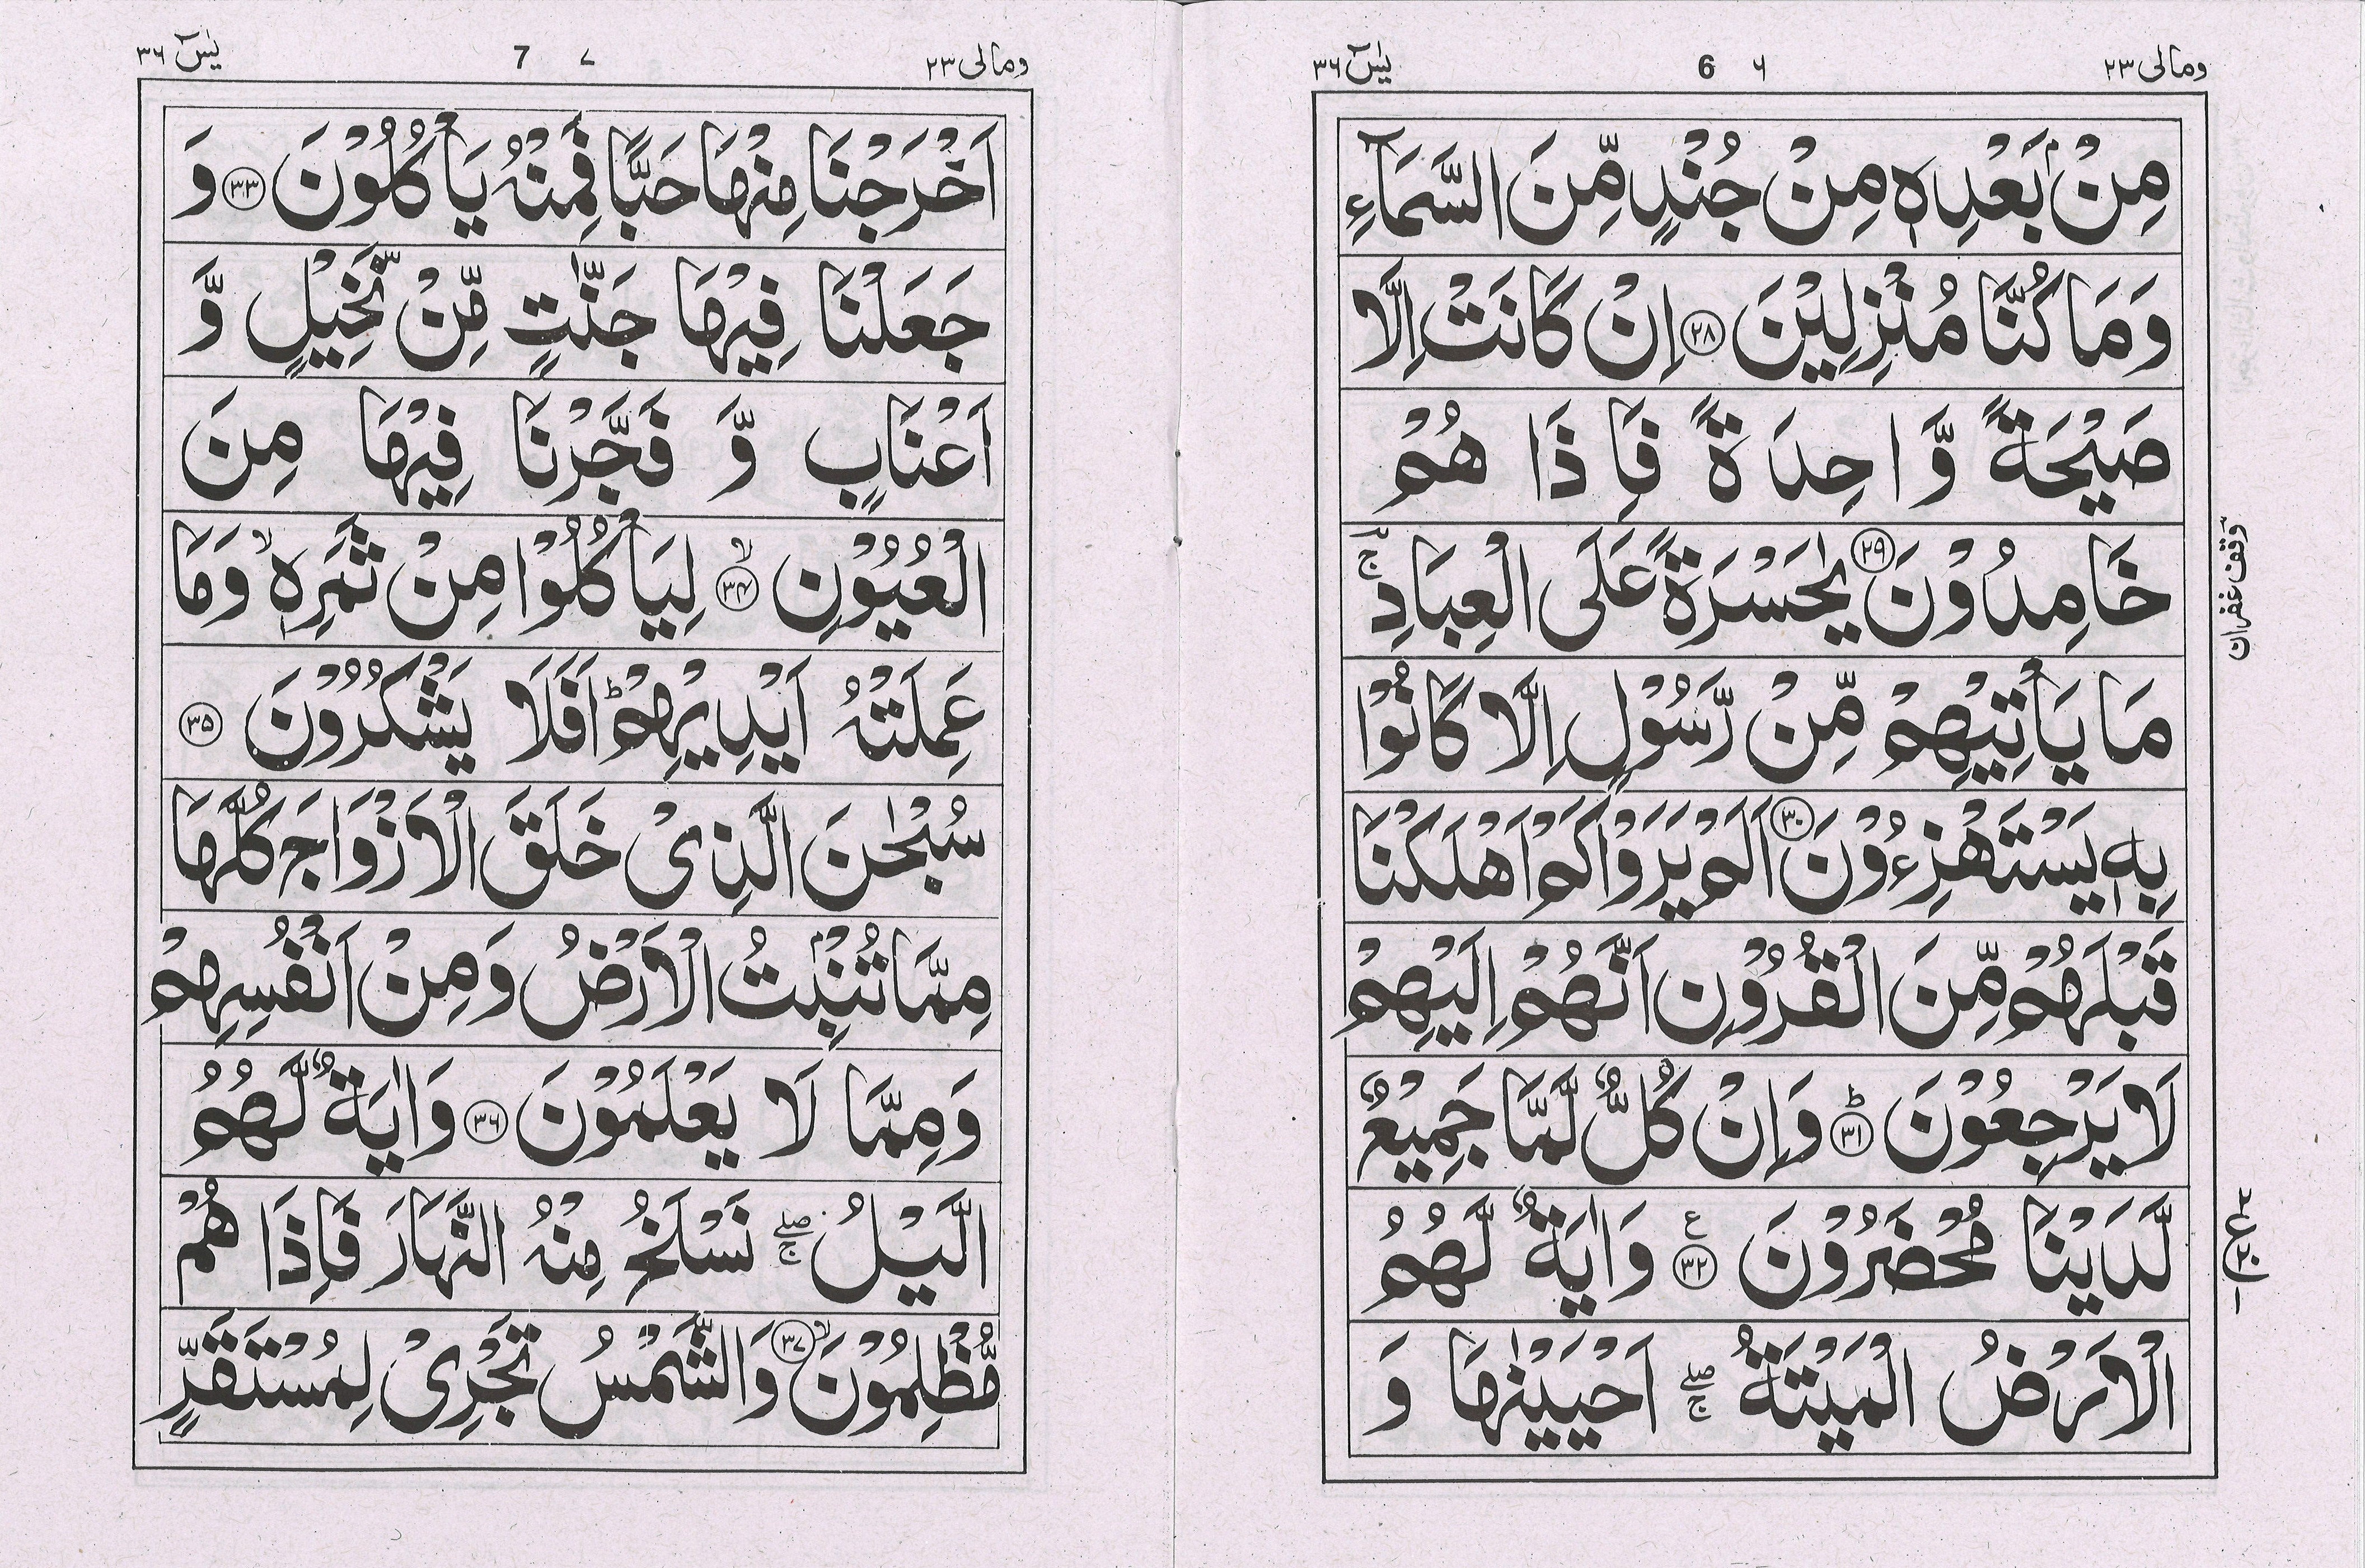 ومالی ۲۳
6 ۶
یٰسٓ ۳۶
مِنْۢ بَعْدِهٖ مِنْ جُنْدٍ مِّنَ السَّمَآءِ
وَمَا كُنَّا مُنْزِلِيْنَ ۲۸ اِنْ كَانَتْ اِلَّا
صَيْحَةً وَّاحِدَةً فَاِذَا هُمْ
خَامِدُوْنَ ۲۹ يٰحَسْرَةً عَلَى الْعِبَادِ ۚ
مَا يَاْتِيْهِمْ مِّنْ رَّسُوْلٍ اِلَّا كَانُوْا
بِهٖ يَسْتَهْزِءُوْنَ ۳۰ اَلَمْ يَرَوْا كَمْ اَهْلَكْنَا
قَبْلَهُمْ مِّنَ الْقُرُوْنِ اَنَّهُمْ اِلَيْهِمْ
لَا يَرْجِعُوْنَ ؕ ۳۱ وَاِنْ كُلٌّ لَّمَّا جَمِيْعٌ
لَّدَيْنَا مُحْضَرُوْنَ ع ۳۲ وَاٰيَةٌ لَّهُمُ
الْاَرْضُ الْمَيْتَةُ ۖۚ اَحْيَيْنٰهَا وَ
وقف غفران
ومالی ۲۳
7 ۷
یٰسٓ ۳۶
اَخْرَجْنَا مِنْهَا حَبًّا فَمِنْهُ يَاْكُلُوْنَ ۳۳ وَ
جَعَلْنَا فِيْهَا جَنّٰتٍ مِّنْ نَّخِيْلٍ وَّ
اَعْنَابٍ وَّ فَجَّرْنَا فِيْهَا مِنَ
الْعُيُوْنِ ۙ ۳۴ لِيَاْكُلُوْا مِنْ ثَمَرِهٖ ۙ وَمَا
عَمِلَتْهُ اَيْدِيْهِمْ ؕ اَفَلَا يَشْكُرُوْنَ ۳۵
سُبْحٰنَ الَّذِىْ خَلَقَ الْاَزْوَاجَ كُلَّهَا
مِمَّا تُنْۢبِتُ الْاَرْضُ وَمِنْ اَنْفُسِهِمْ
وَمِمَّا لَا يَعْلَمُوْنَ ۳۶ وَاٰيَةٌ لَّهُمُ
الَّيْلُ ۖۚ نَسْلَخُ مِنْهُ النَّهَارَ فَاِذَا هُمْ
مُّظْلِمُوْنَ ۙ ۳۷ وَالشَّمْسُ تَجْرِىْ لِمُسْتَقَرٍّ